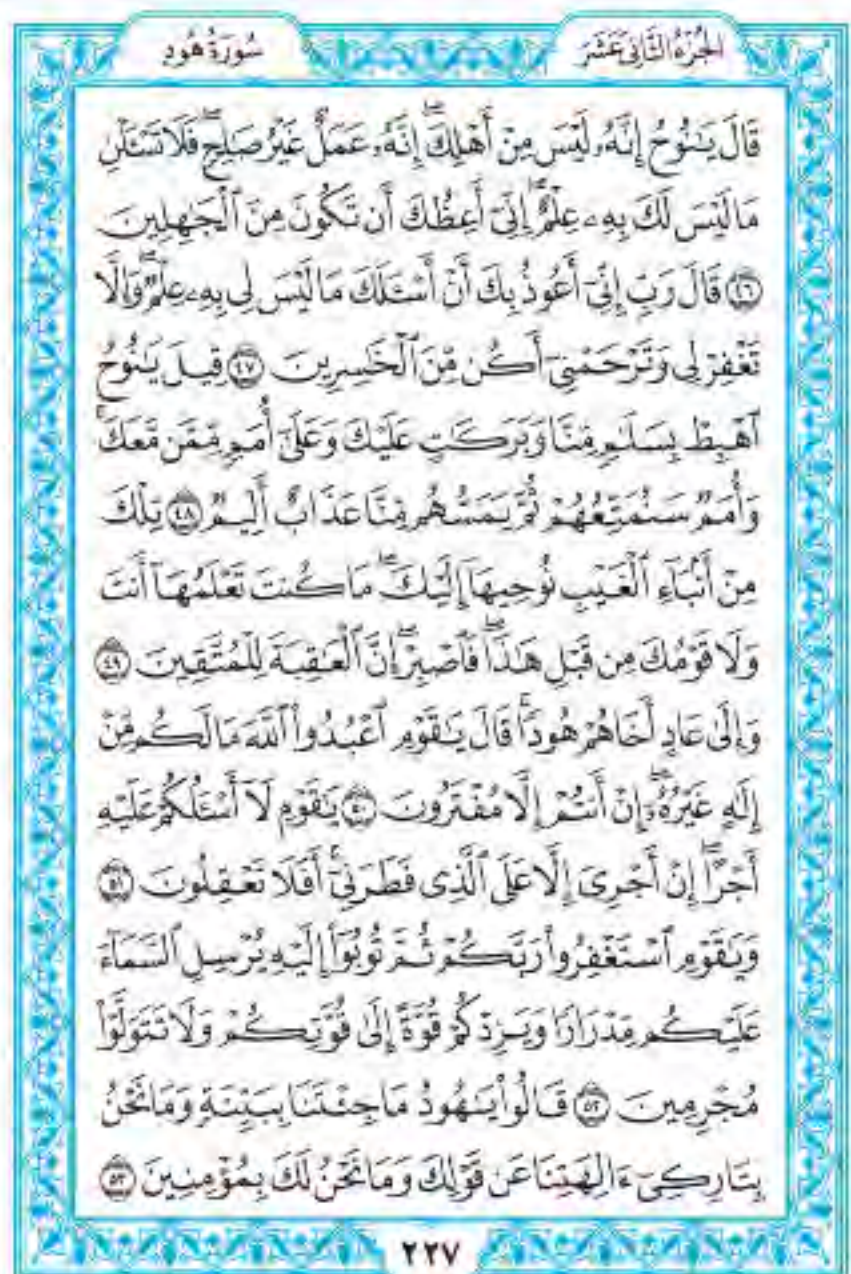 الجُزْءُ الثَّانِي عَشَرَ
سُورَةُ هُودٍ
قَالَ يَٰنُوحُ إِنَّهُۥ لَيْسَ مِنْ أَهْلِكَۖ إِنَّهُۥ عَمَلٌ غَيْرُ صَٰلِحٍۖ فَلَا تَسْـَٔلْنِ
مَا لَيْسَ لَكَ بِهِۦ عِلْمٌۖ إِنِّىٓ أَعِظُكَ أَن تَكُونَ مِنَ ٱلْجَٰهِلِينَ
٤٦ قَالَ رَبِّ إِنِّىٓ أَعُوذُ بِكَ أَنْ أَسْـَٔلَكَ مَا لَيْسَ لِى بِهِۦ عِلْمٌۖ وَإِلَّا
تَغْفِرْ لِى وَتَرْحَمْنِىٓ أَكُن مِّنَ ٱلْخَٰسِرِينَ ٤٧ قِيلَ يَٰنُوحُ
ٱهْبِطْ بِسَلَٰمٍ مِّنَّا وَبَرَكَٰتٍ عَلَيْكَ وَعَلَىٰٓ أُمَمٍ مِّمَّن مَّعَكَۚ
وَأُمَمٌ سَنُمَتِّعُهُمْ ثُمَّ يَمَسُّهُم مِّنَّا عَذَابٌ أَلِيمٌ ٤٨ تِلْكَ
مِنْ أَنۢبَآءِ ٱلْغَيْبِ نُوحِيهَآ إِلَيْكَۖ مَا كُنتَ تَعْلَمُهَآ أَنتَ
وَلَا قَوْمُكَ مِن قَبْلِ هَٰذَاۖ فَٱصْبِرْۖ إِنَّ ٱلْعَٰقِبَةَ لِلْمُتَّقِينَ ٤٩
وَإِلَىٰ عَادٍ أَخَاهُمْ هُودًاۚ قَالَ يَٰقَوْمِ ٱعْبُدُوا۟ ٱللَّهَ مَا لَكُم مِّنْ
إِلَٰهٍ غَيْرُهُۥٓۖ إِنْ أَنتُمْ إِلَّا مُفْتَرُونَ ٥٠ يَٰقَوْمِ لَآ أَسْـَٔلُكُمْ عَلَيْهِ
أَجْرًاۖ إِنْ أَجْرِىَ إِلَّا عَلَى ٱلَّذِى فَطَرَنِىٓۚ أَفَلَا تَعْقِلُونَ ٥١
وَيَٰقَوْمِ ٱسْتَغْفِرُوا۟ رَبَّكُمْ ثُمَّ تُوبُوٓا۟ إِلَيْهِ يُرْسِلِ ٱلسَّمَآءَ
عَلَيْكُم مِّدْرَارًا وَيَزِدْكُمْ قُوَّةً إِلَىٰ قُوَّتِكُمْ وَلَا تَتَوَلَّوْا۟
مُجْرِمِينَ ٥٢ قَالُوا۟ يَٰهُودُ مَا جِئْتَنَا بِبَيِّنَةٍ وَمَا نَحْنُ
بِتَارِكِىٓ ءَالِهَتِنَا عَن قَوْلِكَ وَمَا نَحْنُ لَكَ بِمُؤْمِنِينَ ٥٣
٢٢٧